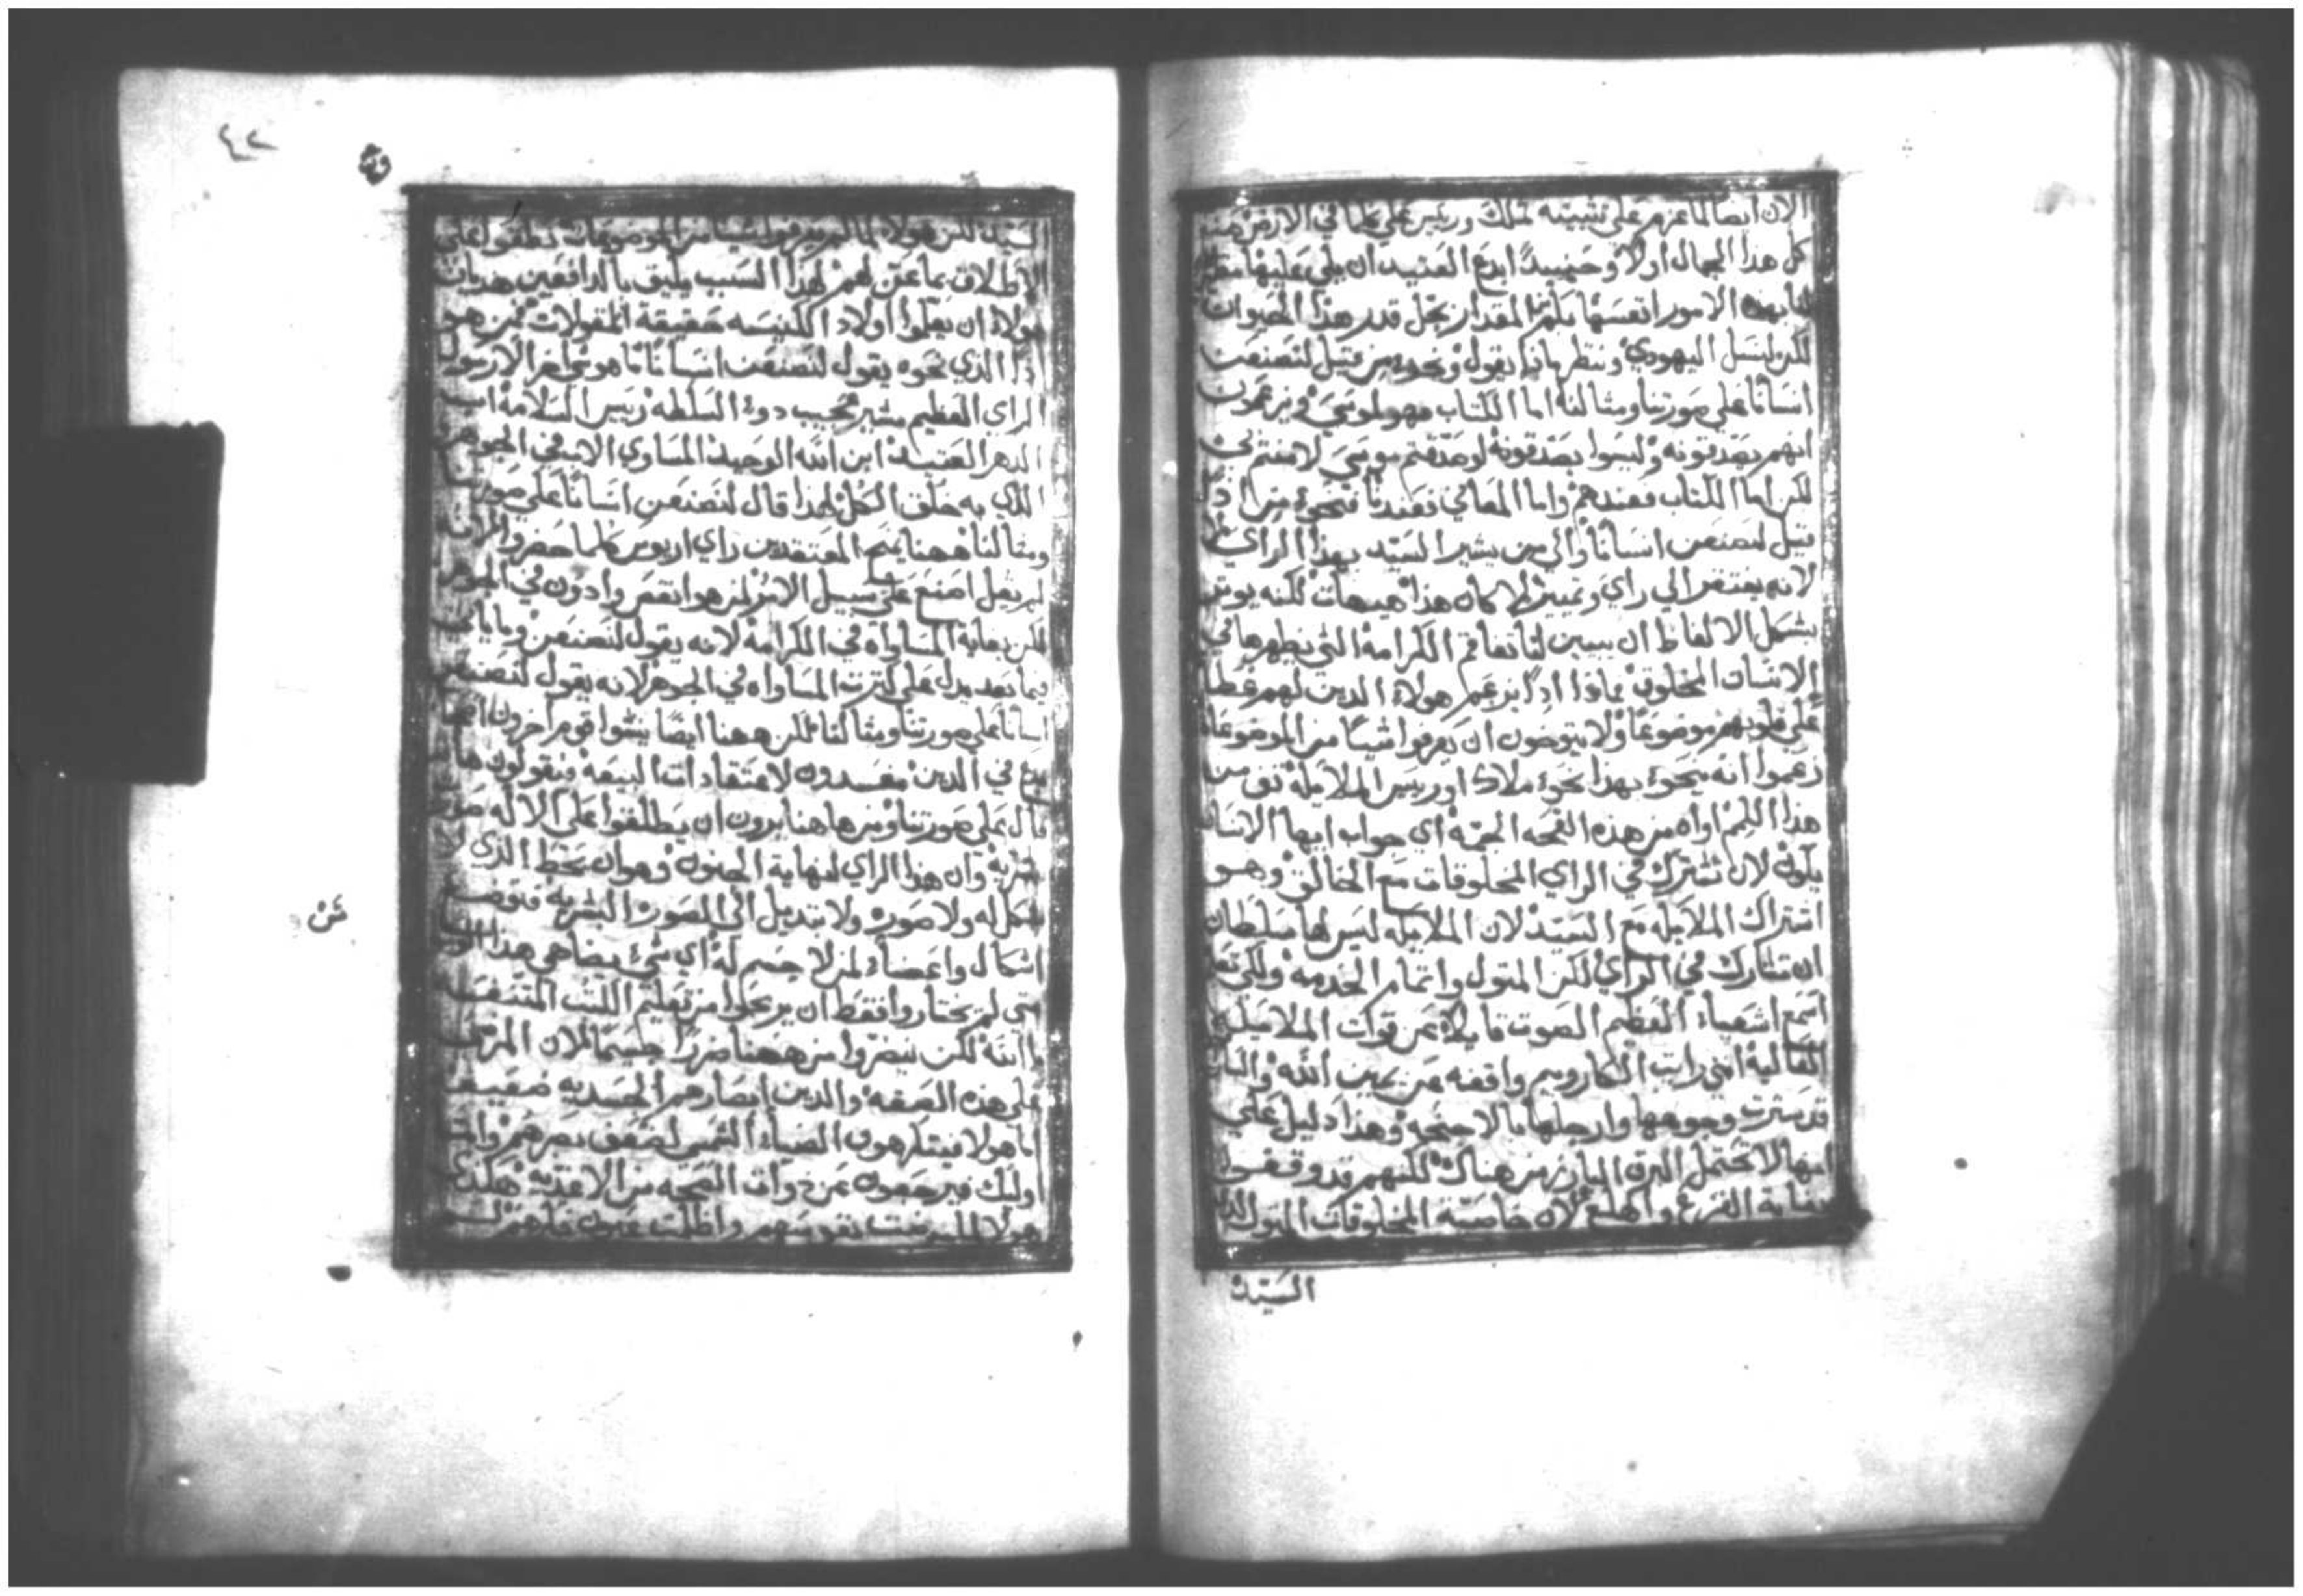 الان ايضا لما عزم على تثبيته لملك وريس على كلما في الارض
كل هذا الجمال اولا وحينيدا ابدع العتيد ان يلي عليها
بهذه الامور انفسها المقدار تجل قدر هذا الحيوان
لكن لنسل اليهودي وننظر ماذا يقول ونحو من قيل لنصنعن
انسانا على صورتنا ومثالنا اما الكتاب فهو لموسي ويزعمون
انهم يصدقونه وليسوا يصدقونه لو صدقتم موسي لامنتم بي
لكن اما الكتاب فعندهم واما المعاني فعندنا فنحو من اذا
قيل لنصنعن انسانا والي من يشير السيد بهذا الراي
لانه يفتقر الي راي وتمييز لا كان هذا هيهات لكنه يوثر
بشكل الالفاظ ان يبين لنا تفاقم الكرامة التي يظهرها في
الانسان المخلوق بماذا اذا يزعم هولاء الدين لهم غطا
على قلوبهم موضوعا ولا يتوخون ان يعرفوا شيا من الموضوعات
زعموا انه يحوي بهذا نحو ملاك او رييس الملايكة تف من
هذا اللمم اواه من هذه القحه الجمه اي جواب ايها الانسان
يكون لان تشترك في الراي المخلوقات مع الخالق وهو
اشتراك الملايكه مع السيد لان الملايكه ليس لها سلطان
ان تشارك في الراي لكن المتول واتمام الخدمه ولكي تعلم
اسمع اشعياء العظيم الصوت قايلا عن قوات الملايكة
العالية انني رايت الكاروبيم واقفه عن يمين الله والساراف
قد سترت وجوهها وارجلها بالاجنحه وهذا دليل علي
انها لا تحتمل البرق البارز من هناك لكنهم قد وقفوا
بغاية الفزع والهلع لان خاصية المخلوقات المتول لدي
السيد
٤٢
السيد لكن هولاء لما لم يعرفوا شيا من الموضوعات نطقوا على
الاطلاق بما عن لهم لهذا السبب يليق بالدافعين هديان
هولاء ان يعلموا اولاد الكنيسه حقيقة المقولات فمن هو
اذا الذي نحوه يقول لنصنعن انسانا ما هو شي اخر الا رسول
الراي العظيم مشير عجيب دو السلطه رييس السلامة اب
الدهر العتيد ابن الله الوحيد المساوي الاب في الجوهر
الذي به خلق الكل لهذا قال لنصنعن انسانا على صورتنا
ومثالنا ههنا المعتقدين راي اريوس كلما حضر والانه
لم يقل اصنع على سبيل الامر لمن هو انقص وادون في الجوهر
لكن بغاية المساواه في الكرامة لانه يقول لنصنعن وما ياتي
فيما بعد يدل على المساواه في الجوهر لانه يقول لنصنعن
انسانا على صورتنا ومثالنا لكن ههنا ايضا ينشوا قوم اخرون
بدع في الدين مفسدون لاعتقادات البيعه فيقولون ها
قال على صورتنا ومن هاهنا يرون ان يطلقوا على الاله صورة
بشريه وان هذا الراي لنهاية الجنون وهو ان نحط الذي لا
شكل له ولا صوره ولا تبديل الي الصورة البشريه فنوضع
اشكال واعضاء لمن لا جسم له اي شي يضاهي هذا
متى لم يختاروا فقط ان يربحوا من تعليم الكتب المتنفسه
بالله لكن ينضروا من ههنا ضررا جسيما لان المرضى
على هذه الصفه والدين ابصارهم الجسديه ضعيفه
اما هولاء فيتكرهون الضياء الشمس لضعف بصرهم واما
اوليك فيرجعون عن ذوات الصحه من الاغديه هكذا
هولاء لما مرضت نفوسهم واظلمت عيون قلوبهم